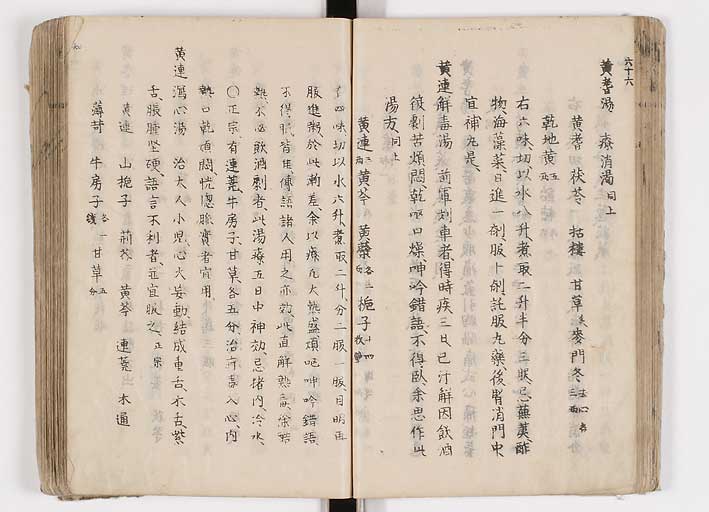 六十六
黄耆湯 療消渇 同上
黄耆 茯苓 括樓 甘草 炙 麥門冬 去心 各三兩
乾地黄 五兩
右六味切以水八升煮取二升半分三服忌蕪荑酢
物海藻菜日進一剤服十剤訖服丸藥後腎消門中
宜補丸是
黄連解毒湯 前軍刘車者得時疾三日已汗解因飲酒
復劇苦煩悶乾嘔口燥呻吟錯語不得臥余思作此
湯方 同上
黄連 三兩 黄芩 黄蘗 各二兩 梔子 十四枚擘
右四味切以水六升煮取二升分二服一服目明再
服進粥於此漸差余以療凡大熱盛煩嘔呻吟錯語
不得眠皆佳傳語諸人用之亦効此直解熱毒除酷
熱不必飲酒劇者此湯療五日中神効忌猪肉冷水
〇正宗有連蕘牛房子甘草各五分治疔毒入心内
熱口乾煩悶恍惚脈實者宜用
黄連瀉心湯 治大人小児心火妄動結成重舌木舌紫
舌脹腫堅硬語言不利者並宜服之 正宗
黄連 山梔子 荊芥 黄芩 連蕘 木通
薄荷 牛房子 各一錢 甘草 五分